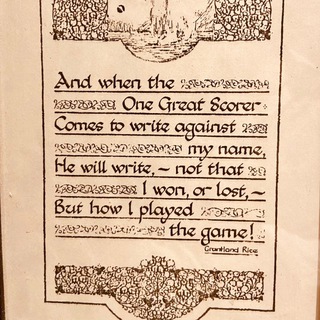 And when the
One Great Scorer
Comes to write against
my name,
He will write, – not that
I won, or lost, –
But how I played
the game!
Grantland Rice